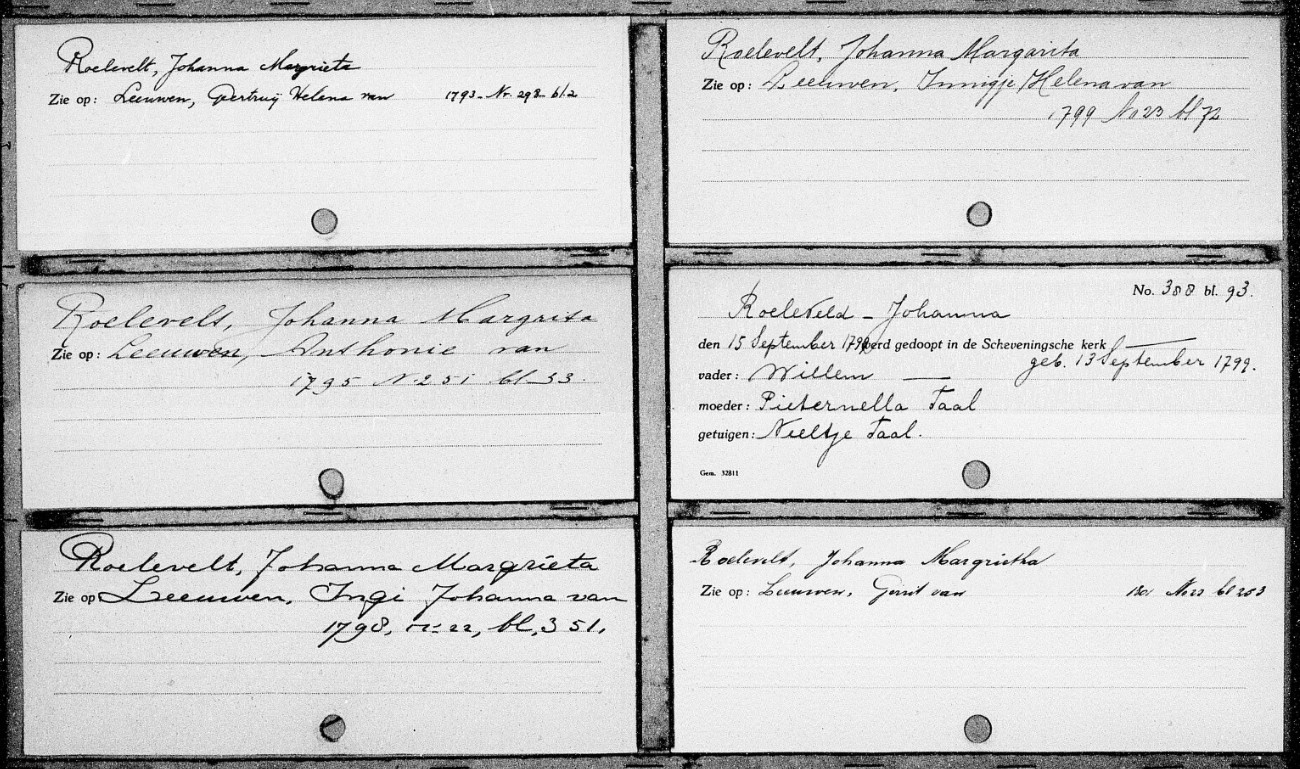 Roelevelt, Johanna Margrieta
Zie op: Leeuwen, Gertruij Helena van 1793 - Nr. 298 bl. 2
Roelevelt, Johanna Margrita
Zie op: Leeuwen, Anthonie van
1795 N 251 bl. 33.
Roelevelt, Johanna Margrieta
Zie op Leeuwen, Ingi Johanna van
1798, no 22, bl. 351.
Roelevelt, Johanna Margarita
Zie op: Leeuwen, Innigje Helena van
1799 No 23 bl 72
No. 388 bl. 93.
Roeleveld - Johanna
den 15 September 1799 werd gedoopt in de Scheveningsche kerk
geb. 13 September 1799.
vader: Willem —
moeder: Pieternella Taal
getuigen: Neeltje Taal.
Gem. 32811
Roelevelt, Johanna Margrietha
Zie op: Leeuwen, Gerrit van 1801 No 22 bl 253